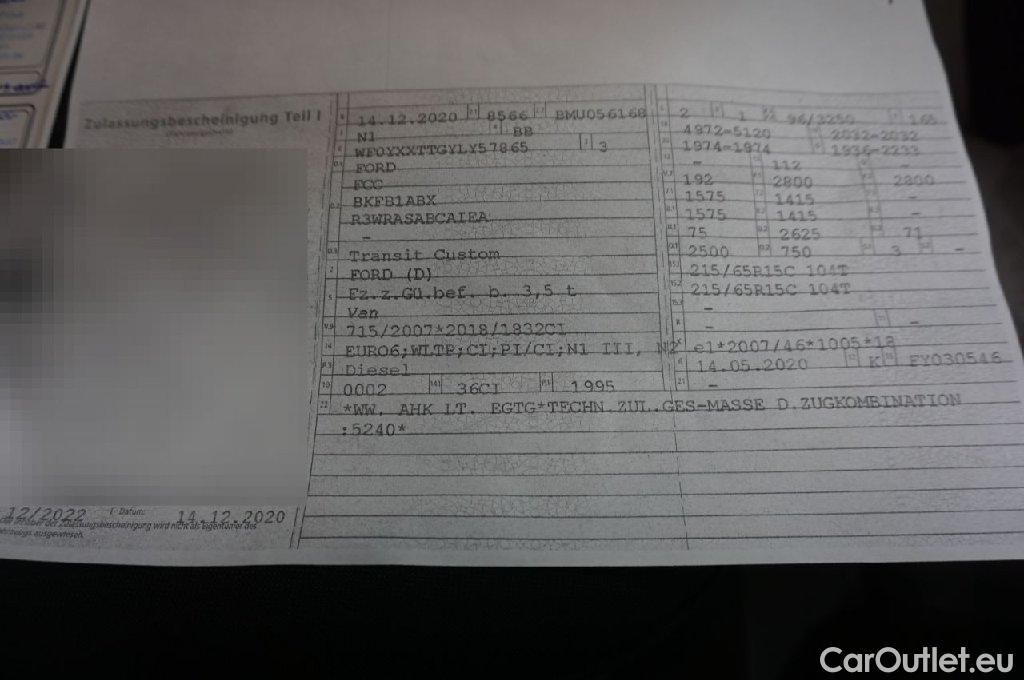 Zulassungsbescheinigung Teil I
14.12.2020 8566 BMU056168
N1 BB
WF0YXXTTGYLY57865 3
FORD
FCC
BKFB1ABX
R3WRASABCAIEA
-
Transit Custom
FORD (D)
Fz.z.Gü.bef. b. 3,5 t
Van
715/2007*2018/1832CI
EURO6;WLTP;CI;PI/CI;N1 III, N2
Diesel
0002 36CI 1995
2 1 96/3250 165
4972-5120 2032-2032
1974-1974 1936-2233
- 112 -
192 2800 2800
1575 1415 -
1575 1415 -
75 2625 71
2500 750 3 -
215/65R15C 104T
215/65R15C 104T
-
- -
e1*2007/46*1005*18
14.05.2020 K EY030546
-
*WW. AHK LT. EGTG*TECHN.ZUL.GES-MASSE D.ZUGKOMBINATION
:5240*
12/2022 Datum: 14.12.2020
der Zulassungsbescheinigung wird nicht als Eigentümer des
ausgewiesen.
CarOutlet.eu